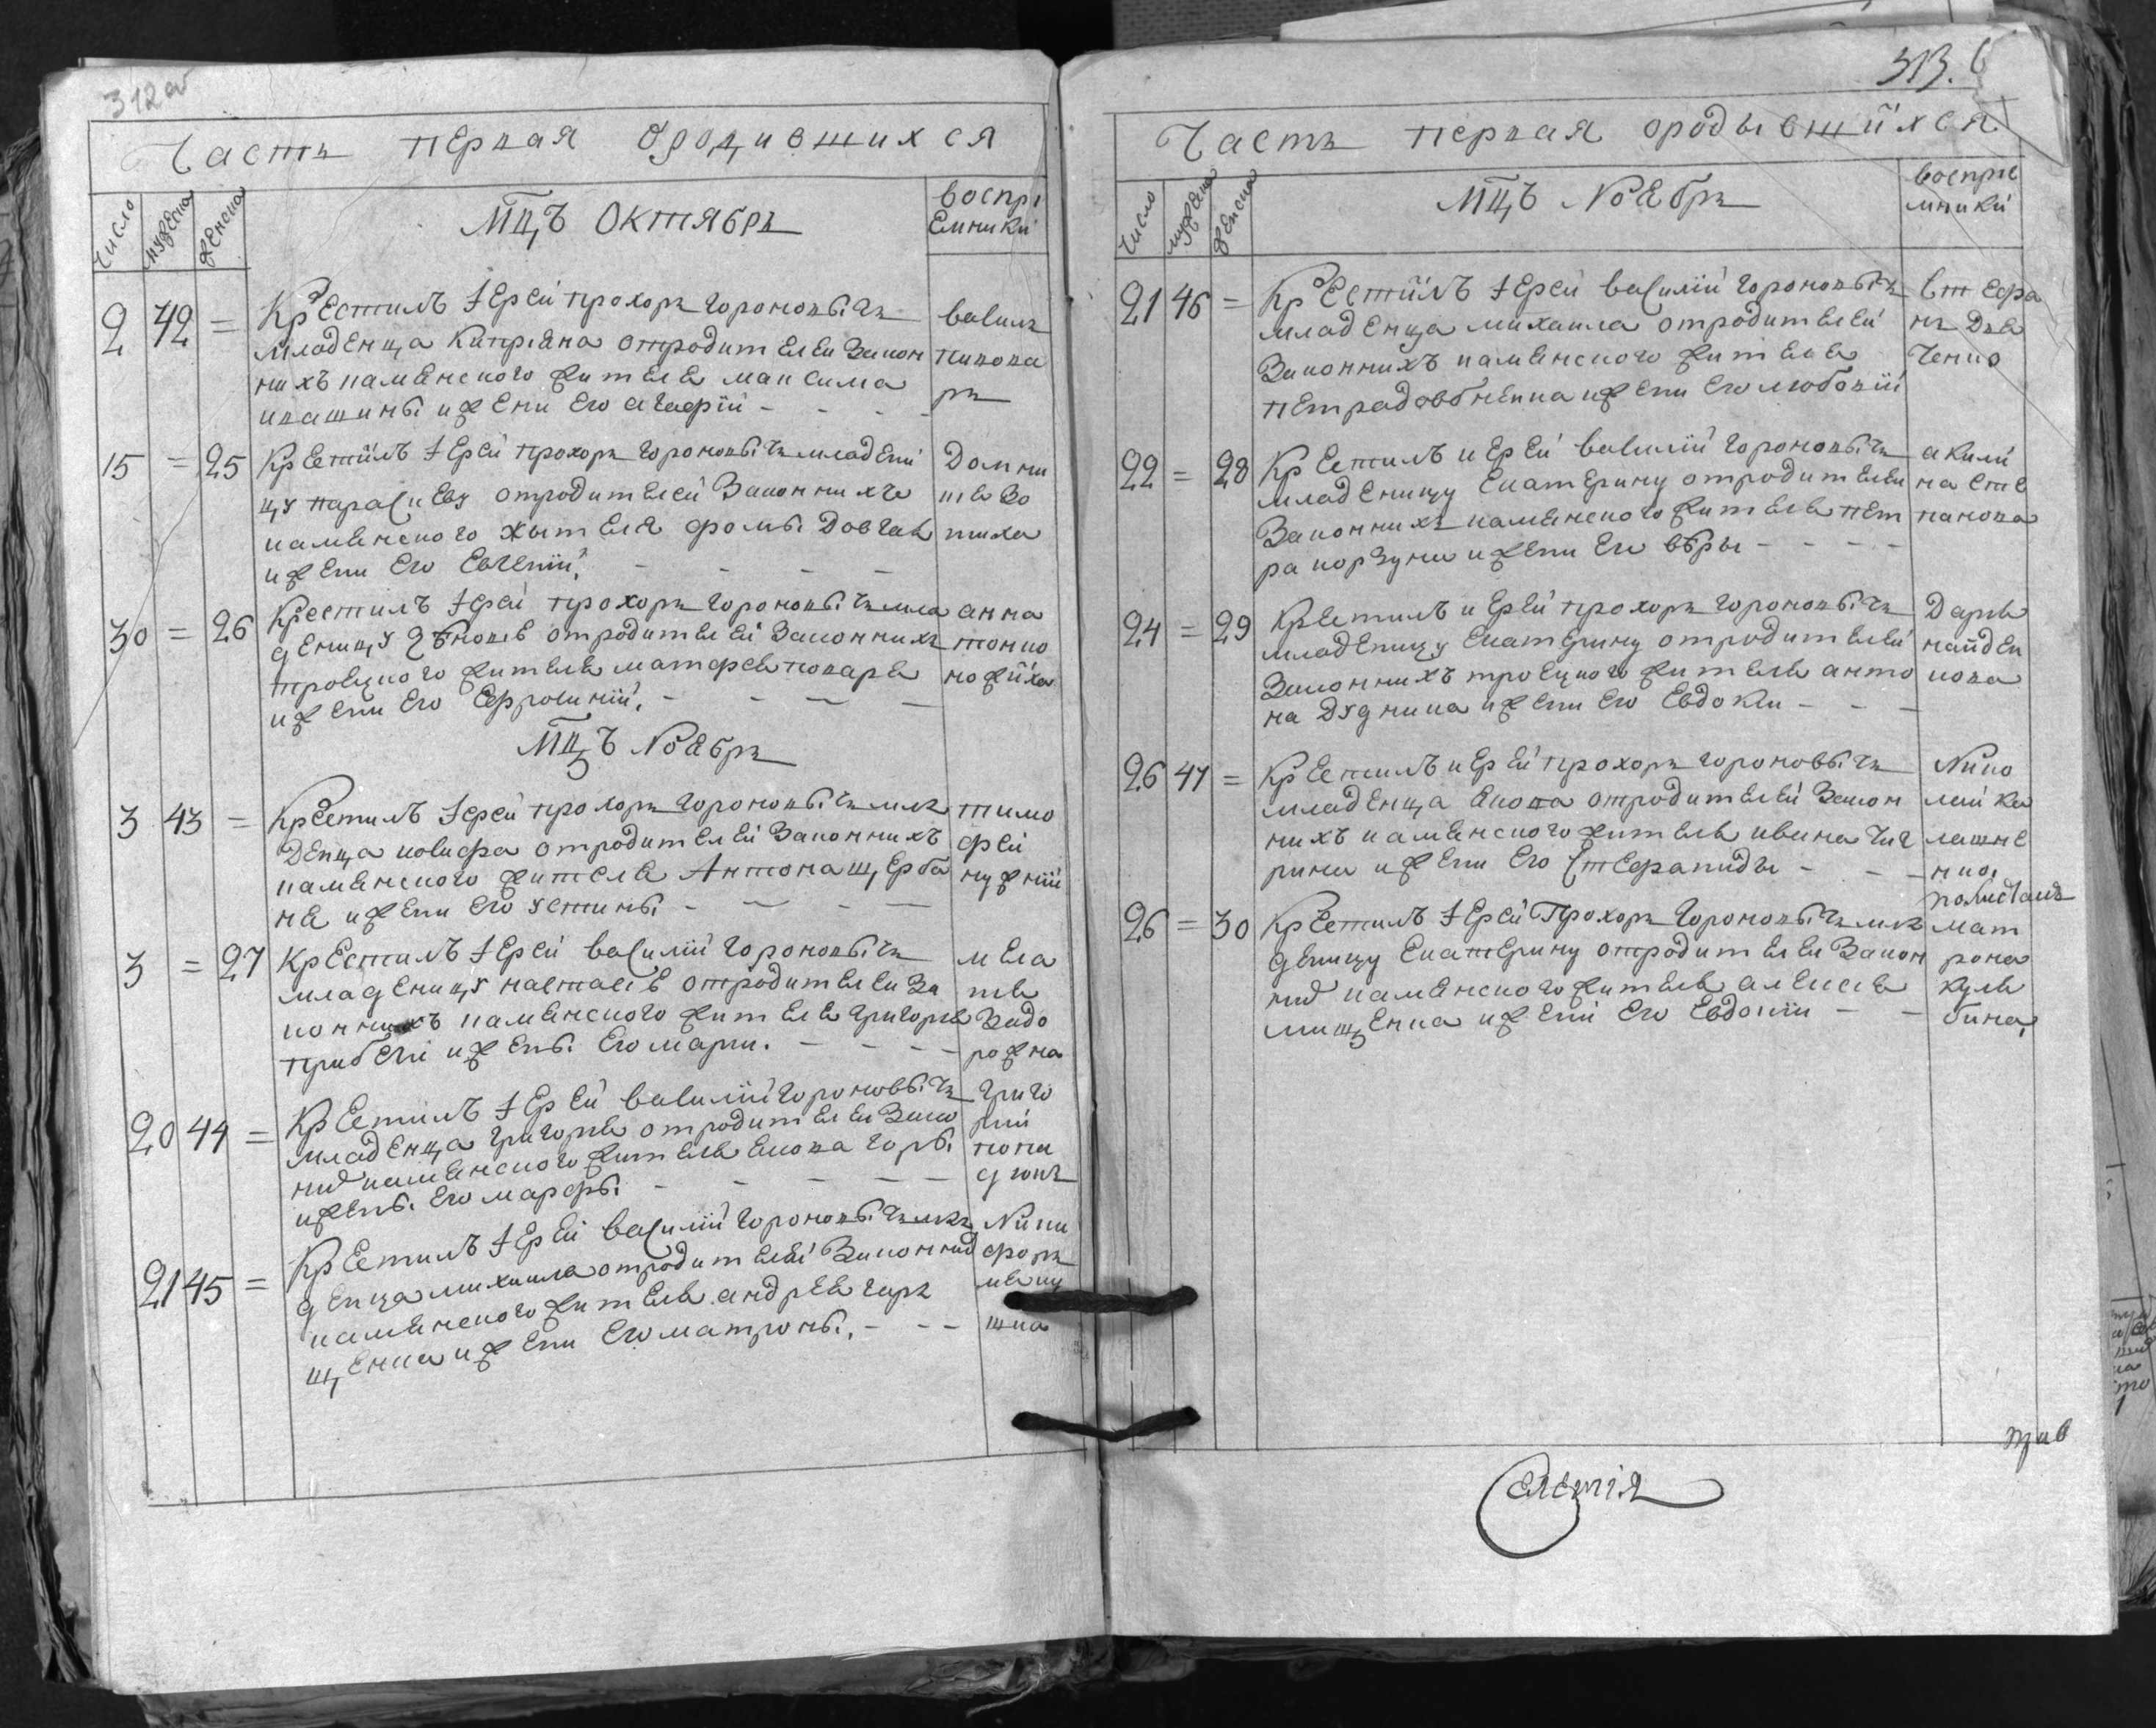 312
Часть первая ородившихся
Число
мужеска
женска
Мцъ Октябрь
воспрі
емники
2 42 = Крестилъ Іерей прохоръ гороновычъ
младенца Кипріяна отродителей закон
нихъ каменского жителя максима
ивашины ижени его агафіи - - -
васил
пивова
ръ
15 = 25 Крестилъ Іерей прохоръ гороновычъ младени
цу парасиеву отродителей законнихъ
каменского жителя фомы довгаля
ижени его Евгеніи, - - - -
Домни
тка
пиха
30 = 26 Крестилъ Іерей прохоръ гороновычъ мла
деницу отродителей законнихъ
троецкого жителя матфея токаря
ижени его Ефросиніи, - - - -
анна
тонко
ножиха
Мцъ Ноябрь
3 43 = Крестилъ Іерей прохоръ гороновычъ мла
денца иосифа отродителей законнихъ
каменского жителя Антона щерба
ня ижени его устины - - - -
тимо
фей
нужній
3 = 27 Крестилъ Іерей василій гороновычъ
младеницу настасію отродителей за
коннихъ каменского жителя григорія
ижены его марии. - - - -
мела
ния
Задо
рожна
20 44 = Крестилъ Іерей василій гороновычъ
младенца григорія отродителей зако
них каменского жителя якова
ижены его марфы - - - - -
григо
рий
пона
дюкъ
21 45 = Крестилъ Іерей василій гороновычъ мла
денца михаила отродителей законних
каменского жителя андрея гарк
щенка ижени его матроны, - - -
Ники
форъ
шка
313.
Часть первая ородывшийхся
Число
мужеска
женска
Мцъ Ноябрь
воспріе
мники
21 46 = Крестилъ Іерей василій гороновычъ
младенца михаила отродителей
законнихъ каменского жителя
петра ижени его любовіи
Стефа
нъ Дяв
ченко
22 = 28 Крестилъ иерей василій гороновычъ
младеницу Екатерину отродителей
законнихъ каменского жителя пет
ра корзуна ижени его вѣры - - - -
акили
на сте
панова
24 = 29 Крестилъ иерей прохоръ гороновычъ
младеницу Екатерину отродителей
законнихъ троецкого жителя анто
на дудника ижени его Евдокіи - - -
Дарія
найден
кова
26 47 = Крестилъ иерей прохоръ гороновычъ
младенца якова отродителей закон
нихъ каменского жителя ивана чиг
рина ижени его Стефаниды - - -
Нико
лай ка
лашне
нко,
26 = 30 Крестилъ Іерей Прохоръ гороновычъ мла
деницу Екатерину отродителей закон
них каменского жителя алексея
мищенка ижени его Евдокіи - -
мат
рона
куля
бина,